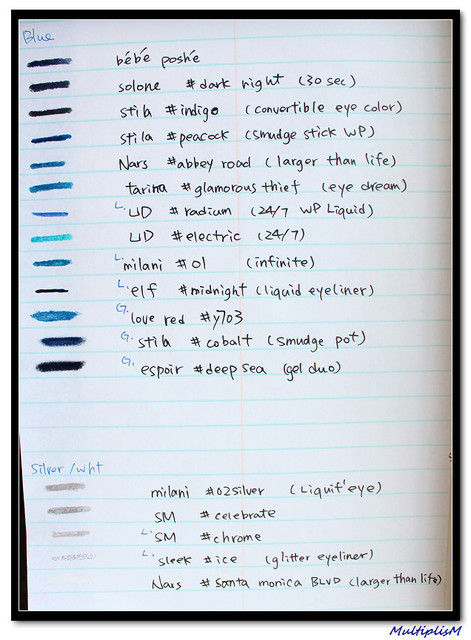 Blue
bébé poshé
solone #dark night (30 sec)
stila #indigo (convertible eye color)
stila #peacock (smudge stick WP)
Nars #abbey road (larger than life)
tarina #glamorous thief (eye dream)
L. UD #radium (24/7 WP Liquid)
UD #electric (24/7)
L. milani #01 (infinite)
L. elf #midnight (liquid eyeliner)
G. love red #y703
G. stila #cobalt (smudge pot)
G. espoir #deep sea (gel duo)
Silver/wht
milani #02silver (Liquif'eye)
SM #celebrate
L. SM #chrome
L. sleek #ice (glitter eyeliner)
Nars #santa monica BLVD (larger than life)
MultiplisM